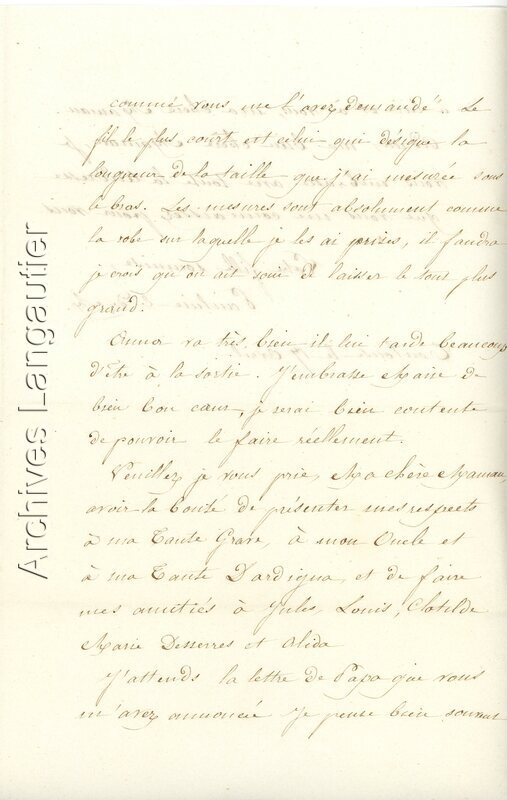 comme vous me l'avez demandé" Le
fil le plus court est celui qui désigne la
longueur de la taille que j'ai mesurée sous
le bras. Les mesures sont absolument comme
la robe sur laquelle je les ai prises, il faudra
je crois qu'on ait soin de laisser le tout plus
grand.
va très bien il lui tarde beaucoup
d'être à la sortie. J'embrasse Marie de
bien bon cœur, je serai bien contente
de pouvoir le faire réellement.
Veuillez je vous prie, Ma chère Maman,
avoir la bonté de présenter mes respects
à ma Tante Grave, à mon Oncle et
à ma Tante Dardigna, et de faire
mes amitiés à Jules, Louis, Clotilde
Marie Desserres et Alida
J'attends la lettre de Papa que vous
m'avez annoncée Je pense bien souvent
Archives Langautier